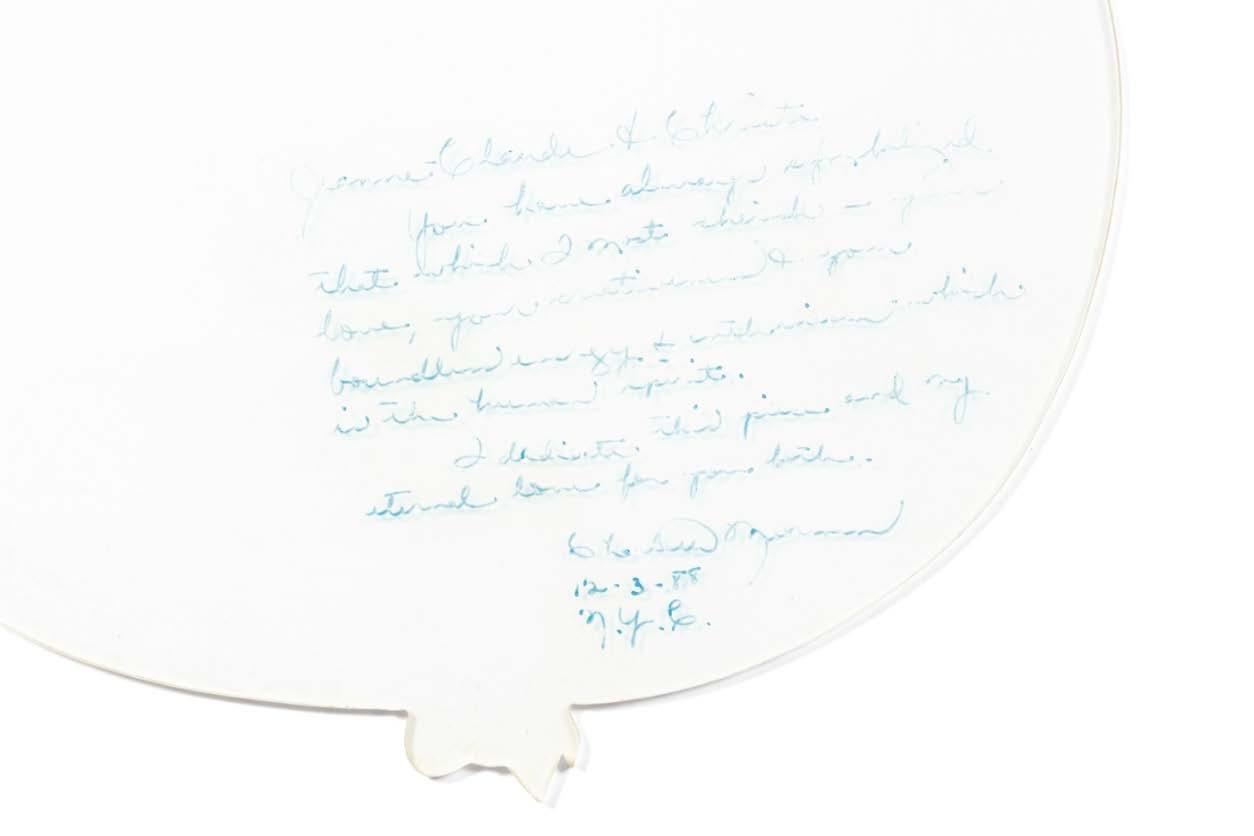 Jeanne-Claude & Christo
You have always symbolized
that which I most cherish – your
love, your creativeness & your
boundless energy & enthusiasm which
is the human spirit.
I dedicate this piece and my
eternal love for you both.
12-3-88
N.Y.C.